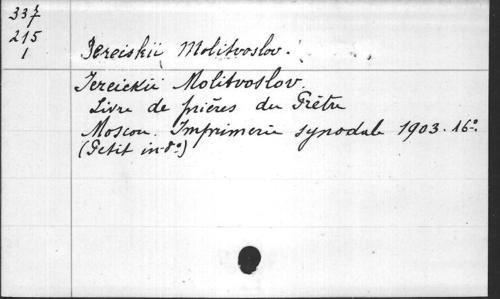 337
215
1
Iereiskii Molitvoslov.
Iereickii Molitvoslov.
Livre de prières du Prêtre
Moscou. Imprimerie synodale 1903. 16º.
(Petit in-8º)